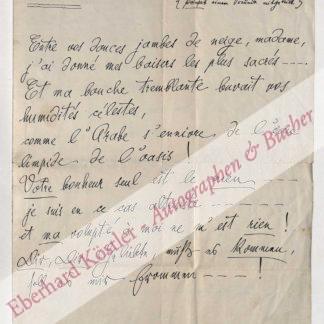 (
einem Freunde mitgeteilt)
Entre vos douces jambes de neige, madame,
j'ai donné mes baisers les plus sacrés ----
Et ma bouche tremblante buvait vos
humidités célestes,
comme l'Arabe s'enivre de l'eau
limpide de l'oasis!
Votre bonheur seul est le mien
je suis en ce cas altruiste --
et ma volupté à moi ne m'est rien!
Dir, Dir, Geliebten, muß es kommen,
soll es mir frommen ---!
Eberhard Köstler - Autographen & Bücher